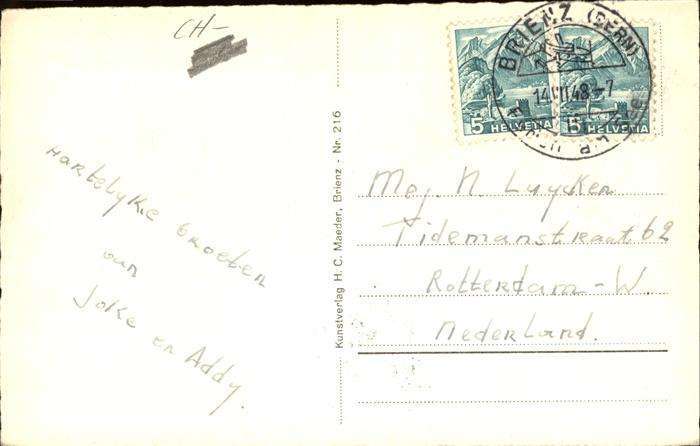 CH-
5 HELVETIA
5 HELVETIA
BRIENZ (BERN)
14.VII.48-7
Hartelyke Groeten
van
Joke en Addy.
Kunstverlag H. C. Maeder, Brienz - Nr. 216
Mej. N. Luycken
Tidemanstraat 62
Rotterdam-W.
Nederland.